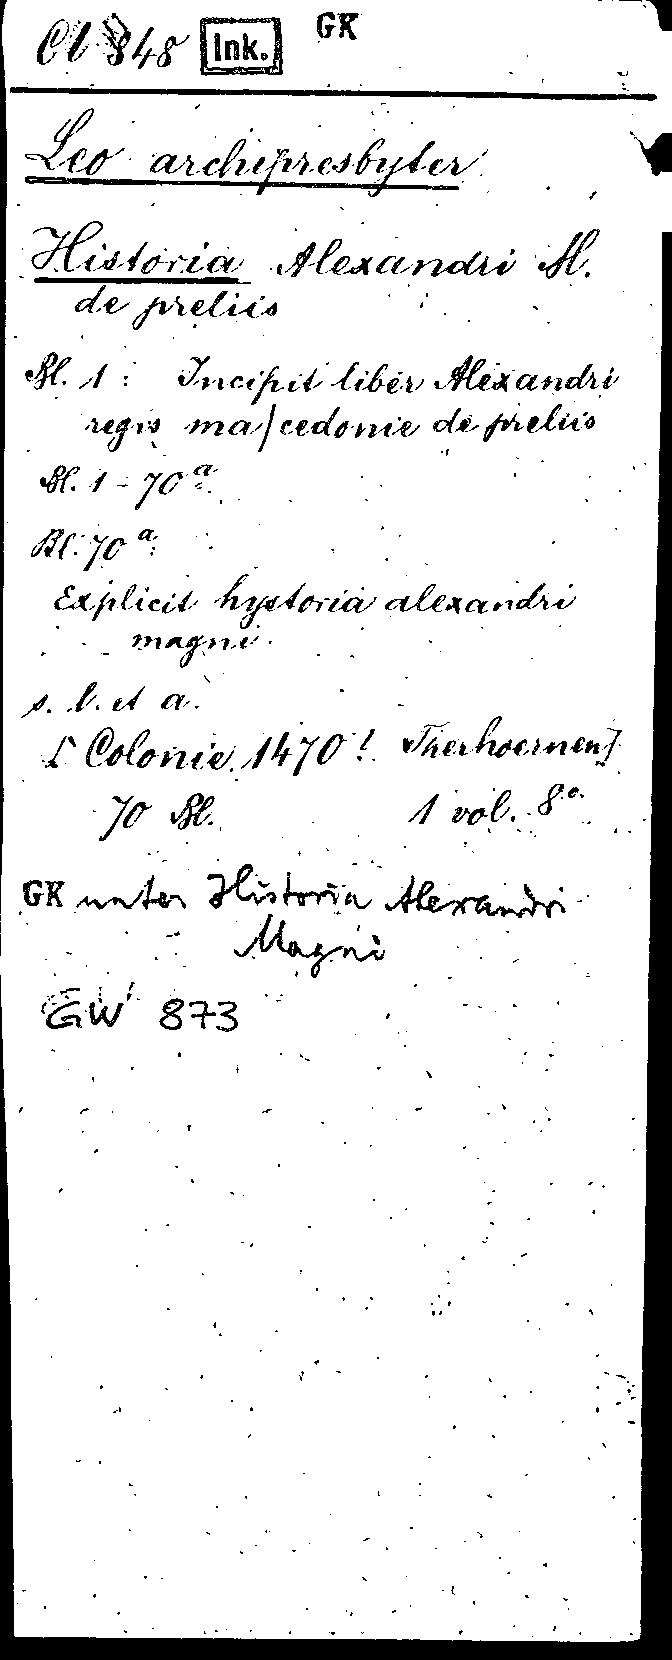 Cl 848 Ink. GK
Leo archipresbyter
Historia Alexandri M.
de preliis
Bl. 1: Incipit liber Alexandri
regis ma/cedonie de preliis
Bl. 1-70ª.
Bl. 70ª:
Explicit hystoria alexandri
magni.
s. l. et a.
[Colonie, 1470! Therhoernen]
70 Bl. 1 vol. 8º.
GK unter Historia Alexandri
Magni
GW 873